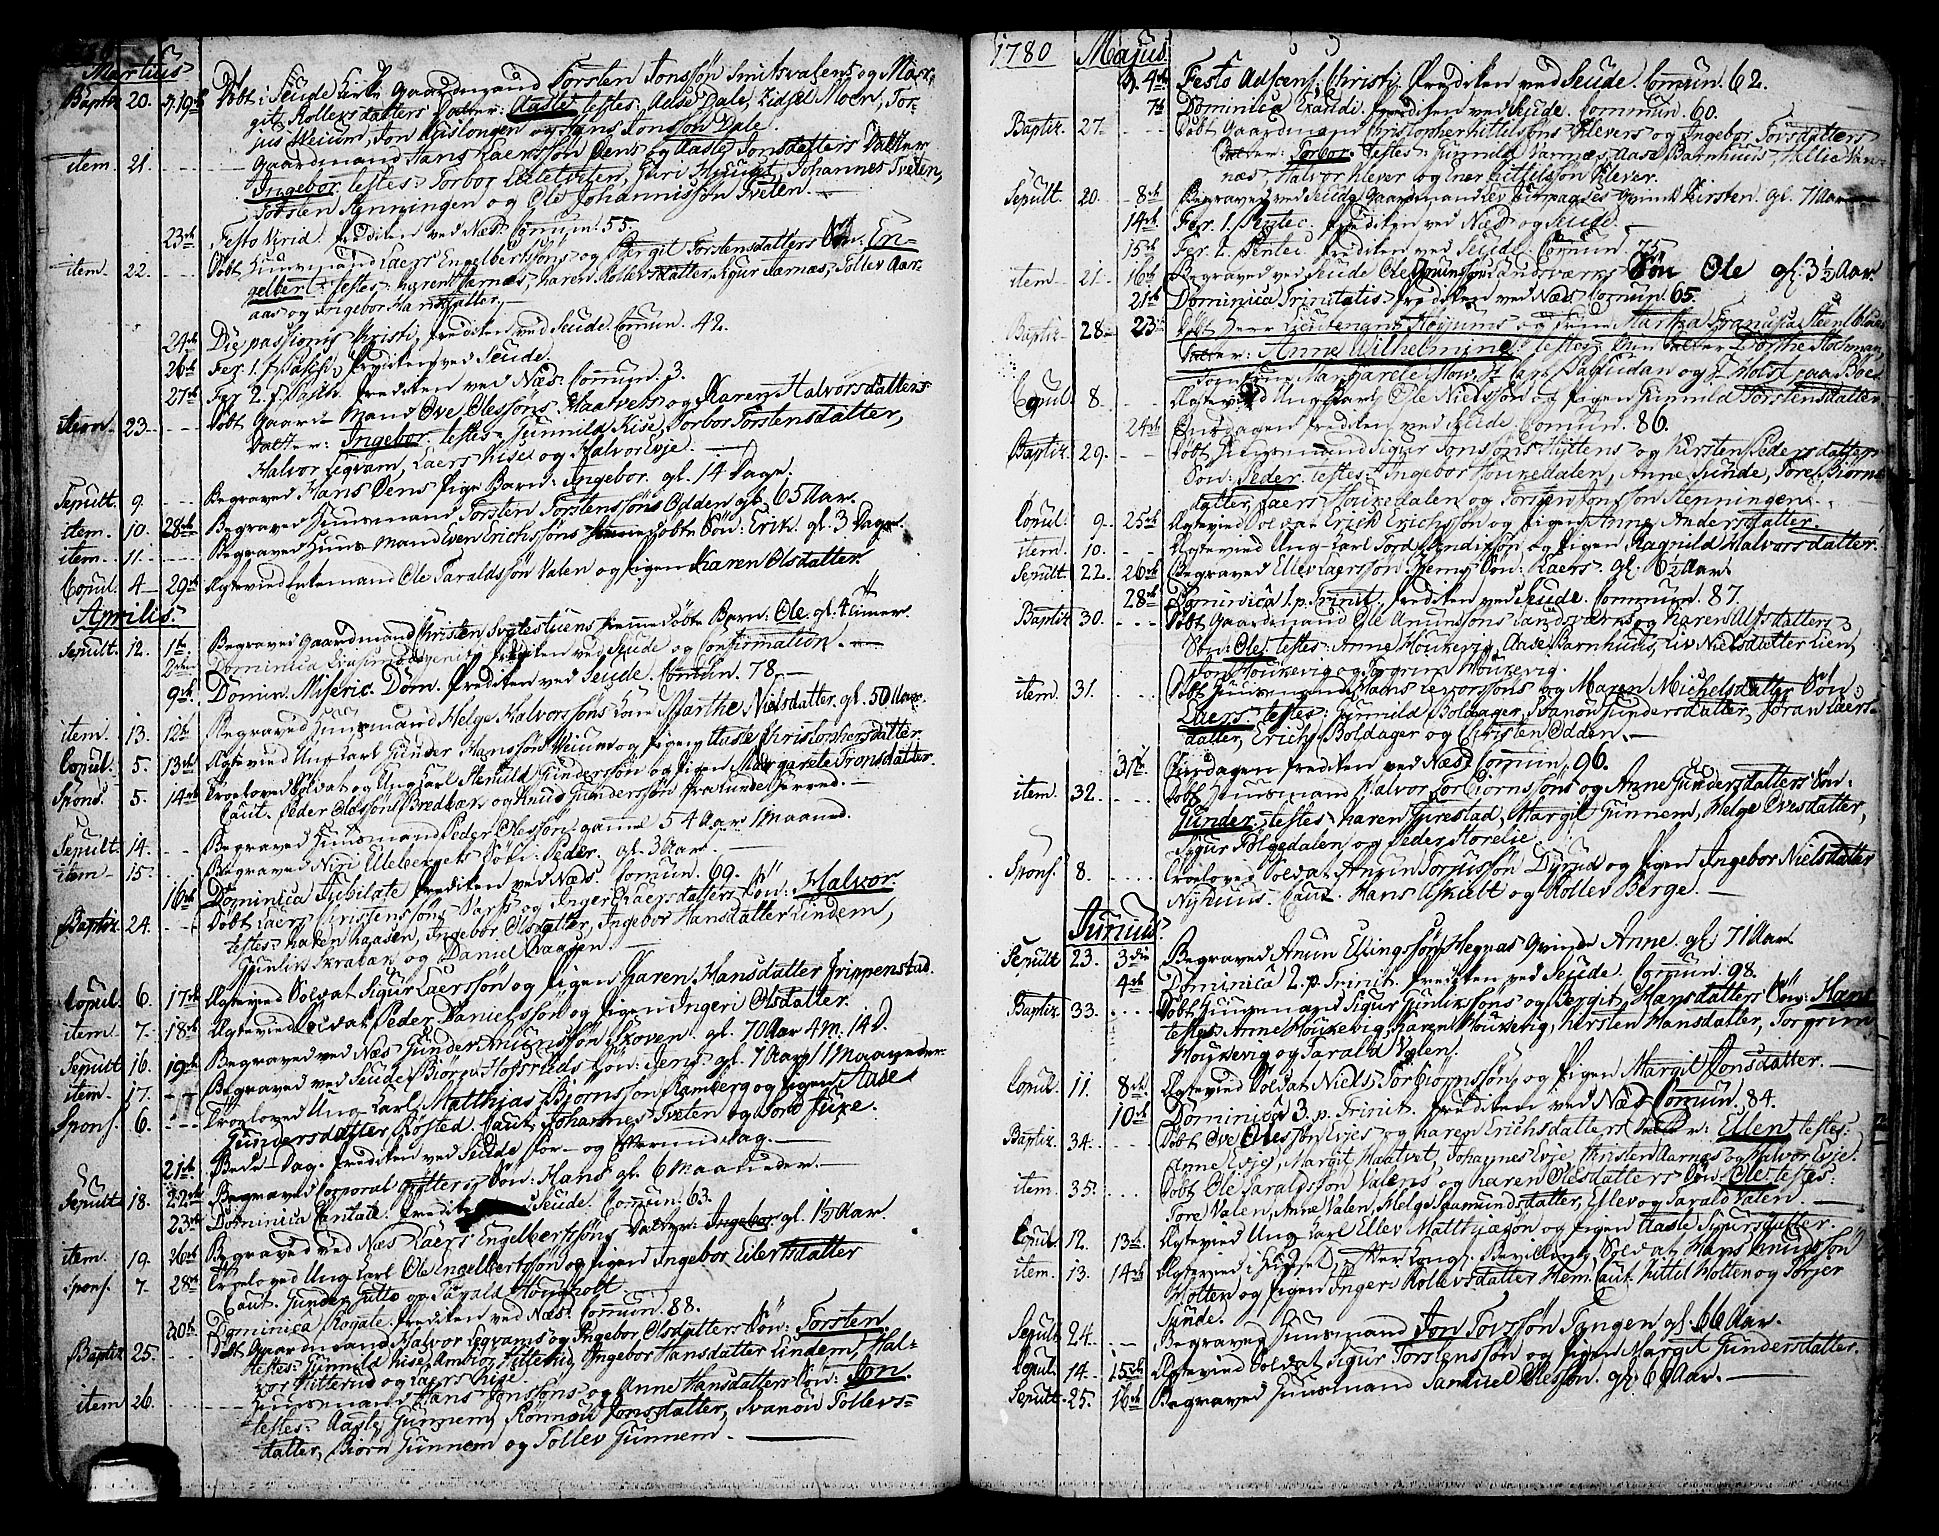 Martius
Baptiz 20. d. 19de Døbt i Seude Kirke Gaardmand Torsten Jonssøn Smitsvalens og Mar-
git Rollefsdatters Datter: Aasle. testes: Aase Dale, Zidsel Moen, Tor-
jus Weium, Jon og Hans Jonssøn Dale.
item 21. Gaardmand Hans Laerssøn Øens og Aasle Jonsdatters Datter
Ingebor. testes: Torbor Guri Johannes Tveten,
Torsten Stenningen og Ole Johannissøn Tveten.
23de Festo Virid. Prediken ved Næs. Comun: 55.
item. 22. Døbt Huusmand Laers Engelbertsøns og Bergit Torstensdatters Søn: En-
gelber. testes: Karen Aarnæs, Karen Rollevsdatter, Sigur Aarnæs, Tollev Aar-
aas og Ingebor Hansdatter.
24de Die passionis Christi, Prediken ved Seude. Comun. 42.
26de Fer. 1. f. Pasch. Prediken ved Seude.
27de Fer 2. f. Pasch. Prediken ved Næs. Comun. 3.
item. 23. Døbt Gaard-Mand Ove Olessøns Haatvets og Karen Halvorsdatters
Datter: Ingebor. testes: Gunnild Kise, Torbor Torstensdatter,
Halvor Legvam, Laers Kise og Halvor Evje.
Sepult. 9. Begraved Hans Øens Pige Barn: Ingebor. gl. 14 Dage.
item. 10. 28de Begraved Huusmand Torsten Torstenssøns Odden gl. 65 Aar.
item. 11. Begraved Huus Mand Even Erichssøns døbte Søn: Erik. gl. 3 Dage.
Copul. 4 29de Egtevied Enkemand Ole Taraldssøn Valen og Pigen Karen Olsdatter.
Aprilis.
Sepult. 12. 1te Begraved Gaardmand Christen hiemmedøbte Barn: Ole. gl. 4 timer.
2den Dominica Quasimodogeniti Prediken ved Seude og Confirmation.
9de Domin. Miseric. Dom. Prediken ved Seude. Comun. 78.
item. 13. 12te Begraved Huusmand Helge Halvorssøns Kone Marthe Nielsdatter. gl. 50 Aar.
Copul. 5. 13de Egtevied Ung Karl Gunder Hanssøn Weium og Pigen Aasle Christophersdatter.
Spons. 5. 14de Troeloved Soldat og Ung Karl Steinuld Gunderssøn og Pigen Margarete Tronsdatter.
Caut. Peder Olessøn Bredbæk og Knud Gunderssøn fra Lunde Herred.
Sepult. 14. Begraved Huusmand Peder Olessøn, gamme 54 Aar 1 Maaned.
item 15. Begraved Niri Ellebergets Søn: Peder. gl. 3 Aar.
16de Dominica Jubilate Prediken ved Næs. Comun. 69.
Baptiz. 24. Døbt Laers Christenssøns og Inger Laersdatters Søn: Halvor.
testes: Karen Kaasen, Ingebor Olsdatter, Ingebor Hansdatter Lindem,
Gunlik og Daniel Kaasen.
Copul. 6. 17de Egtevied Soldat Sigur Laerssøn og Pigen Karen Hansdatter Grippenstad.
item. 7. 18de Egtevied Soldat Peder Danielssøn og Pigen Ingeri Olsdatter.
Sepult 16. 19de Begraved ved Næs Gunder Anunssøn Skoven. gl. 70 Aar 4 M. 14 D.
item. 17. Begraved ved Seude Biørn Hofsruds Søn: Jens gl. 7 Aar 11 Maaneder.
Spons. 6. Troeloved Ung Karl Matthias Biørnssøn Ramberg og Pigen Aase
Gundersdatter Rosted. Caut. Johannes Tveten og Tord Juxe.
21de Bede-Dag: Prediken ved Seude For- og Eftermiddag.
Sepult 18. 22de Begraved Corporal Søn: Hans gl. 6 Maaneder.
23de Dominica Cantate. Prediken Seude. Comun. 63.
item. 19. 26de Begraved ved Næs Laers Engelbertssøns Datter: Ingebor gl. 1½ Aar.
Spons. 7. 28de Troeloved Ung Karl Ole Engelbertssøn og Pigen Ingebor Eilertsdatter
Caut. Gunder Jutto og Tarald Høymholt.
30de Dominica Rogate. Prediken ved Næs. Comun. 88.
Baptiz 25. Døbt Gaardmand Halvor Legvams og Ingebor Olsdatters Søn: Torsten.
testes: Gunnild Kise, Ambior Hitterud, Ingebor Hansdatter Lindem, Hal-
vor Hitterud og Laers Kise.
item 26. Huusmand Hans Jonssøns og Anne Hansdatters Søn: Jon.
testes: Aasle Gunnem, Rønnou Jonsdatter, Svanou Tollevs-
datter, Biørn Gunnem og Tollev Gunnem.
1780 Majus
d. 4de Festo Adscens. Christi Prediken ved Seude. Comun. 62.
7de Dominica Exaudi. Prediken ved Seude. Comun. 60.
Baptiz. 27. Døbt Gaardmand Christopher Kittelsøns Klevers og Ingebor Torsdatters
Datter: Torbor. testes: Gunnild Varnæs, Aase Barnhuus, Nellie Var-
næs, Halvor Klever og Ener Kittelssøn Klever.
Sepult 20. 8de Begraved ved Seude Gaardmand Qvinde Kirsten. gl. 71 Aar
14de Fer. 1. Pentec. Prediken ved Næs og Seude.
15de Fer. 2. Pentec. Prediken ved Seude. Comun. 75.
item 21. 16de Begraved ved Seude Ole Anunssøn Landsværks Søn Ole gl. 3½ Aar.
21de Dominica Trinitatis. Prediken ved Næs. Comun. 65.
Baptiz. 28. 23de Døbt Herr Lieutenant Heyums og Frue Martha
Datter: Anne Wilhelmine. testes: Dorthe Stockman,
Margarete Paludan og Holst paa Bøe.
Copul 8. Egtevied Ung Karl Ole Nielssøn og Pigen Gunnild Torstensdatter
24de Onsdagen Prediken ved Seude. Comun. 86.
Baptiz 29. Døbt Huusmand Sigur Jonssøns Hyttens og Kirsten Pedersdatters
Søn: Peder. testes: Ingebor Houxedalen, Anne Sunde, Tore Biørns-
datter, Laers Houxedalen og Torsten Jonssøn Stenningen.
Copul. 9. 25de Egtevied Soldat Erick Erichssøn og Pigen Anne Andersdatter.
item. 10. Egtevied Ung-Karl Tord Jendixsøn og Pigen Ragnild Halvorsdatter.
Sepult 22. 26de Begraved Ellev Laerssøn Søn: Laers. gl. 6½ Aar.
28de Dominica 1. p. Trinit. Prediken ved Seude. Commun. 87.
Baptiz 30. Døbt Gaardmand Ole Anunssøns Landsværks og Karen Ulfsdatters
Søn: Ole. testes: Anne Houkevig, Aase Barnhuus, Liv Nielsdatter Lien,
Jon Houkevig og Torgrim Houkevig.
item 31. Døbt Huusmand Hans Iverssøns og Maren Michelsdatter Søn
Laers. testes: Gunnild Boldager, Svanou Gundersdatter, Joran Laers-
datter, Erich Boldager og Christen Odden.
31te Onsdagen Prediken ved Næs. Comun. 96.
item 32. Døbt Huusmand Halvor Torbiørnssøns og Anne Gundersdatters Søn:
Gunder. testes: Karen Gurestad, Margit Gunnem, Helge Ovesdatter,
Sigur Følgedalen og Peder Horelie.
Spons. 8. Troeloved Soldat Anun Tormssøn Dyrud og Pigen Ingebor Nielsdatter
Nyhuus. Caut. Hans Askilt og Rollev Berge.
Junius
Sepult 23. 3die Begraved Anun Ellingssøn Hegnas Qvinde Anne. gl. 71 Aar.
4de Dominica 2. p. Trinit. Prediken ved Seude. Comun. 98.
Baptiz. 33. Døbt Huusmand Sigur Gunlikssøns og Bergit Hansdatters Søn: Hans
testes: Anne Houkevig, Karen Houkevig, Kirsten Hansdatter, Torgrim
Houkevig og Tarald Valen.
Copul 11. 8de Egtevied Soldat Niels Torbiørnssøn og Pigen Margit Jonsdatter.
10de Dominica 3. p. Trinit. Prediken ved Næs. Comun. 84.
Baptiz 34. Døbt Ove Olessøn Evjes og Karen Erichsdatters Datter: Ellen. testes:
Anne Evje, Margit Haatvet, Johannes Evje, Christen Aarnes og Halvor Evje.
item 35. Døbt Ole Taraldssøn Valens og Karen Olesdatters Søn: Ole. testes:
Tore Valen, Anne Valen, Helge Sæmundsdatter, Ellev og Tarald Valen.
Copul 12. 13de Egtevied Ung Karl Ellev Matthiæsøn og Pigen Aasle Sigursdatter.
item. 13. 14de Egtevied i Huuset, efter Kongl. Bevilling, Soldat Hans Knudssøn
Holten og Pigen Ingeri Rollevsdatter Hem. Caut. Kittil Holten og Torjer
Sunde.
Sepult 24. Begraved Huusmand Jon Torssøn Tangen. gl. 66 Aar.
Copul. 14. 15de Egtevied Soldat Sigur Torstenssøn og Pigen Margit Gundersdatter.
Sepult 25. 16de Begraved Huusmand Samuel Olessøn. gl. 66 Aar.